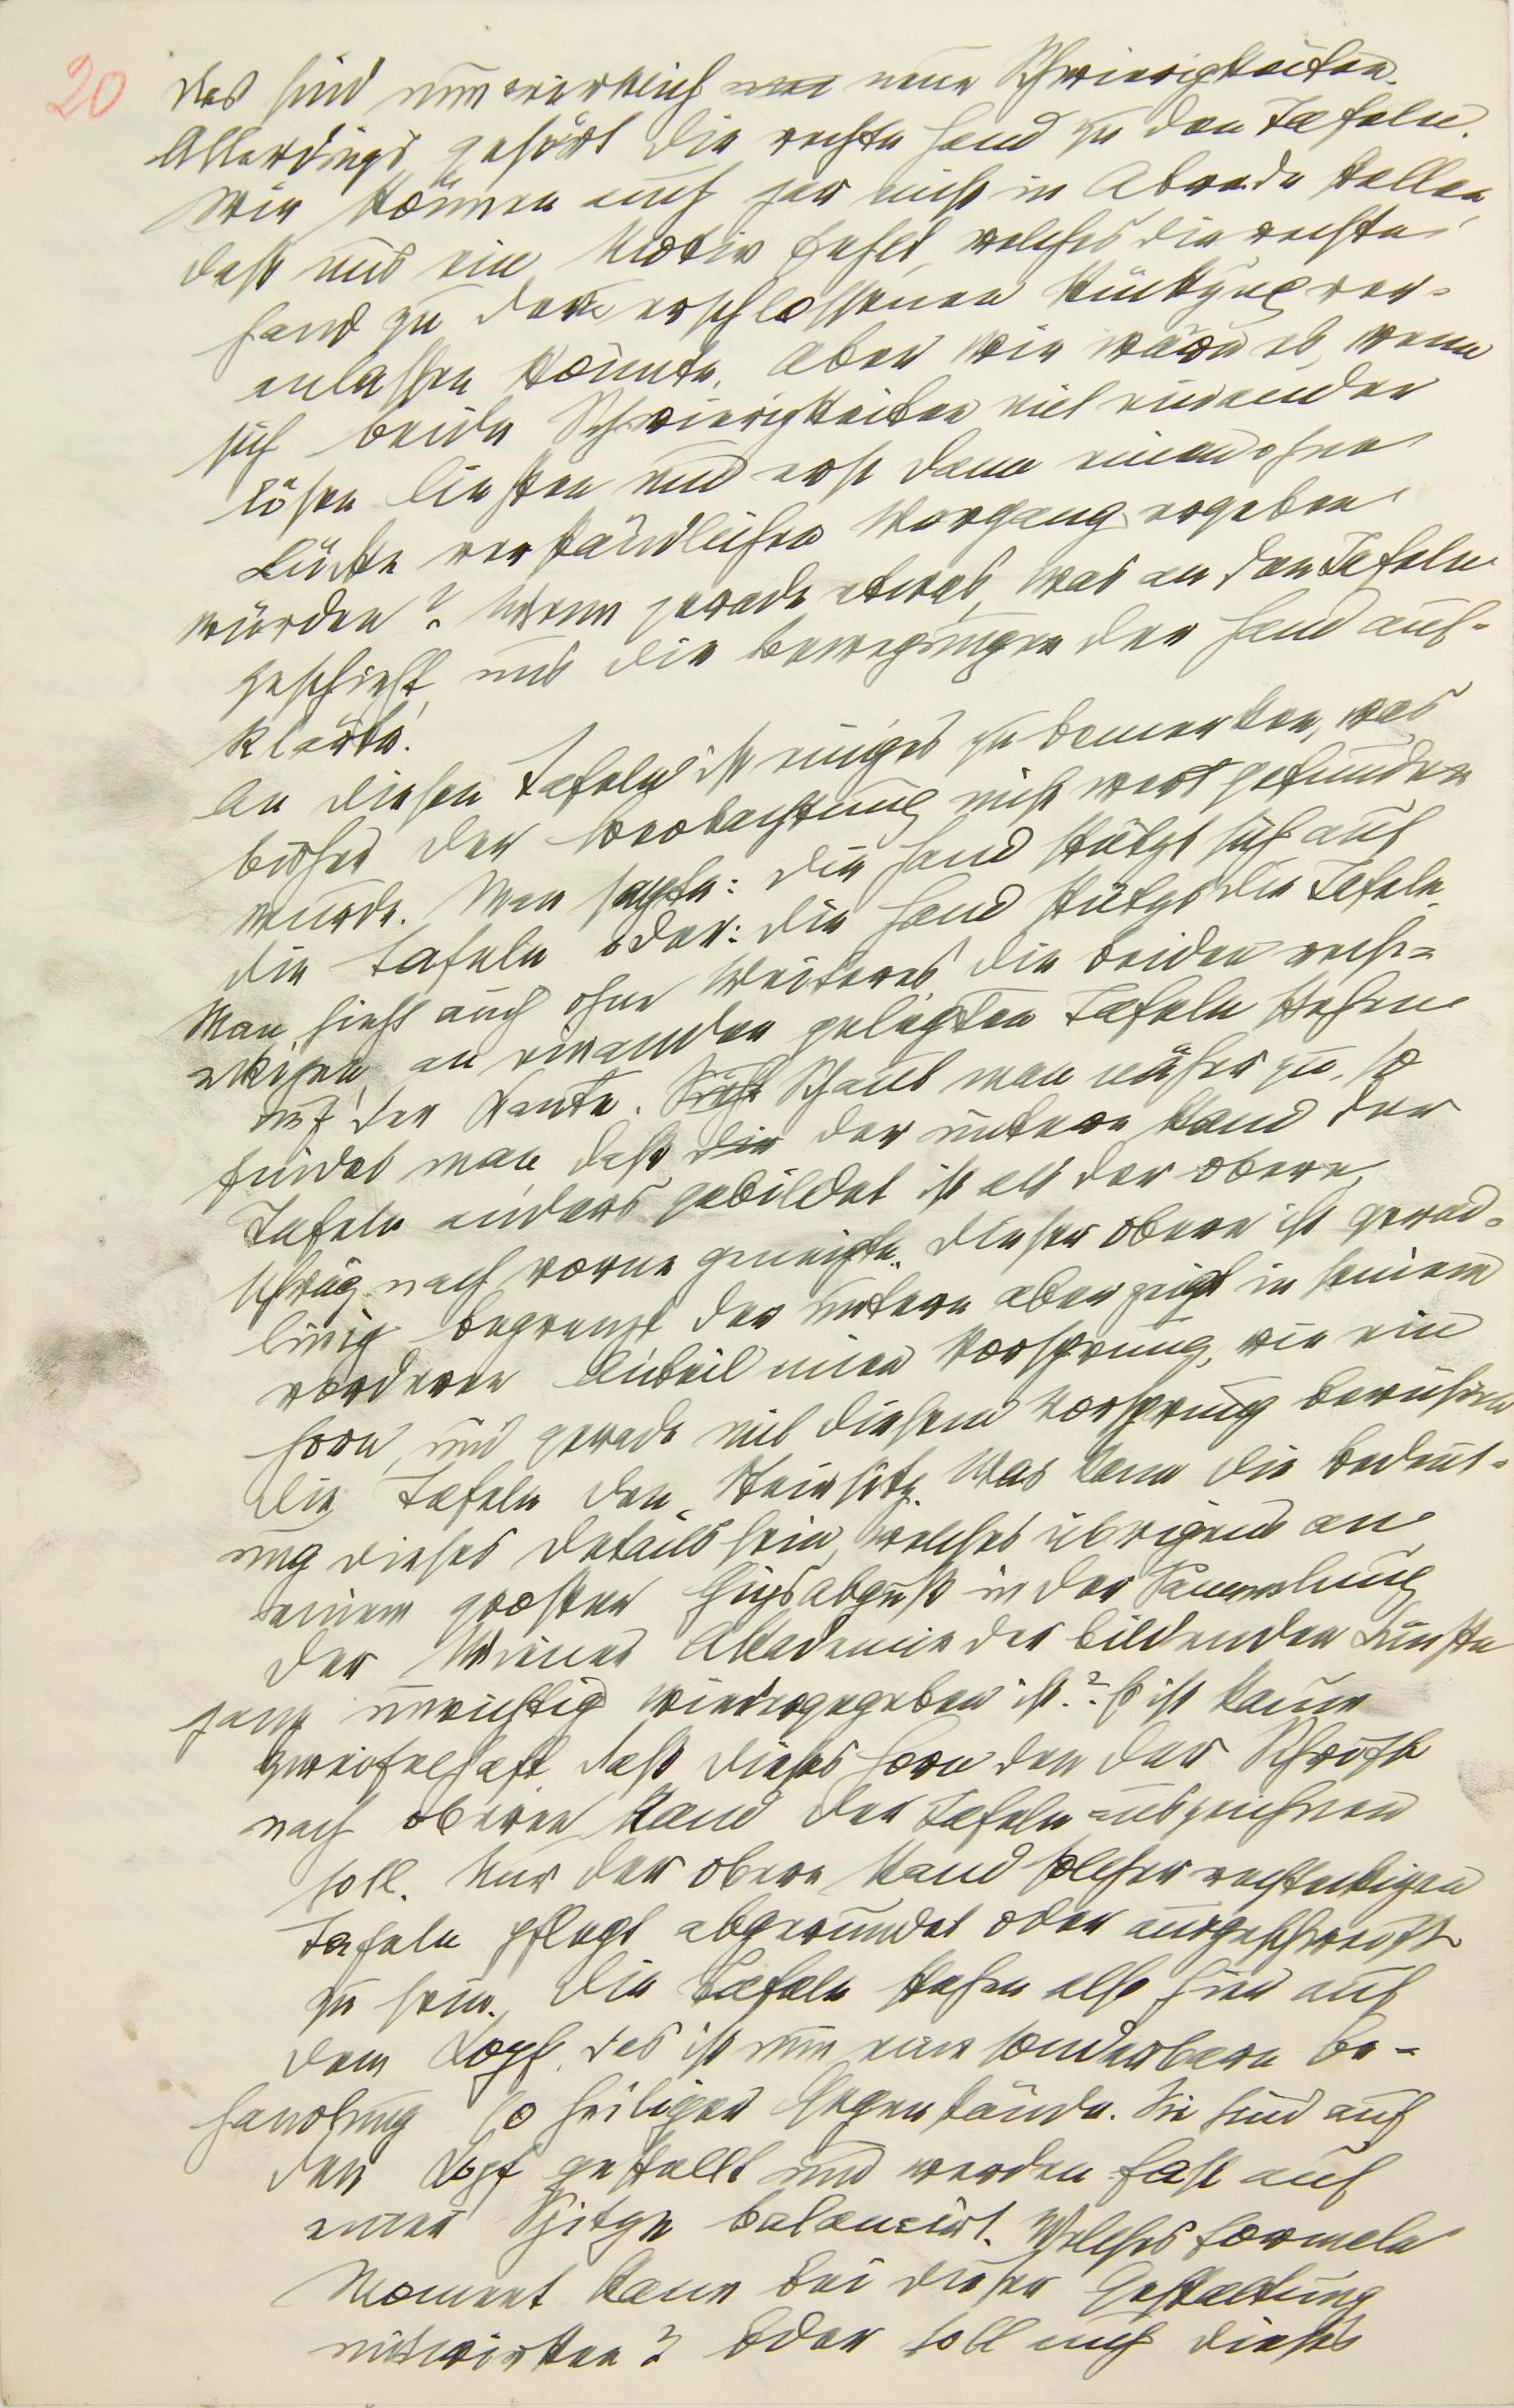 20
Das sind nun wirklich neue Schwierigkeiten.
Allerdings gehört die rechte Hand zu den Tafeln.
Wir können auch gar nicht in Abrede stellen,
daß uns ein Motiv fehlt, welches die rechte
Hand zu dem erschlossenen Rückzug ver-
anlassen könnte. Aber wie wäre es, wenn
sich beide Schwierigkeiten mit einander
lösen ließen und erst dann einen ohne
Lücke verständlichen Vorgang ergeben
würden? Wenn gerade etwas, was an den Tafeln
geschieht, uns die Bewegungen der Hand auf-
klärte!
An diesen Tafeln ist einiges zu bemerken, was
bisher der Beobachtung nicht wert gefunden
wurde. Man sagte: Die Hand stützt sich auf
die Tafeln oder: die Hand stützt die Tafeln.
Man sieht auch ohne Weiteres die beiden recht-
eckigen, an einander gelegten Tafeln stehen
auf der Kante. Schaut man näher zu, so
findet man, daß die der untere Rand der
Tafeln anders gebildet ist als der obere,
schräg nach vorne geneigte. Dieser obere ist gerad-
linig begrenzt, der untere aber zeigt in seinem
vorderen Anteil einen Vorsprung, wie ein
Horn, und gerade mit diesem Vorsprung berühren
die Tafeln den Steinsitz. Was kann die Bedeut-
ung dieses Details sein, welches übrigens an
einem großen Gipsabguß in der Sammlung
der Wiener Akademie der bildenden Künste
ganz unrichtig wiedergegeben ist? Es ist kaum
zweifelhaft, daß dieses Horn den der Schrift
nach oberen Rand der Tafeln auszeichnen
soll. Nur der obere Rand solcher rechteckigen
Tafeln pflegt abgerundet oder ausgeschweift
zu sein. Die Tafeln stehen also hier auf
dem Kopf. Das ist nun eine sonderbare Be-
handlung so heiliger Gegenstände. Sie sind auf
den Kopf gestellt und werden fast auf
einer Spitze balancirt. Welches formale
Moment kann bei dieser Gestaltung
mitwirken? Oder soll auch dieses